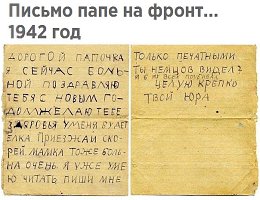 Письмо папе на фронт...
1942 год
ДОРОГОЙ ПАПОЧКА
Я СЕЙЧАС БОЛЬ
НОЙ ПОЗДРАВЛЯЮ
ТЕБЯ С НОВЫМ ГО-
ДОМ ЖЕЛАЮ ТЕБЕ
ЗДОРОВЬЯ УМЕНЯ БУЛЕТ
ЕЛКА ПРИЕЗЖАЙ СКО-
РЕЙ МАМКА ТОЖЕ БОЛЬ-
НА ОЧЕНЬ Я УЖЕ УМЕ
Ю ЧИТАТЬ ПИШИ МНЕ
ТОЛЬКО ПЕЧАТНЫМИ
ТЫ НЕМЦОВ ВИДЕЛ?
ЦЕЛУЮ КРЕПКО
ТВОЙ ЮРА